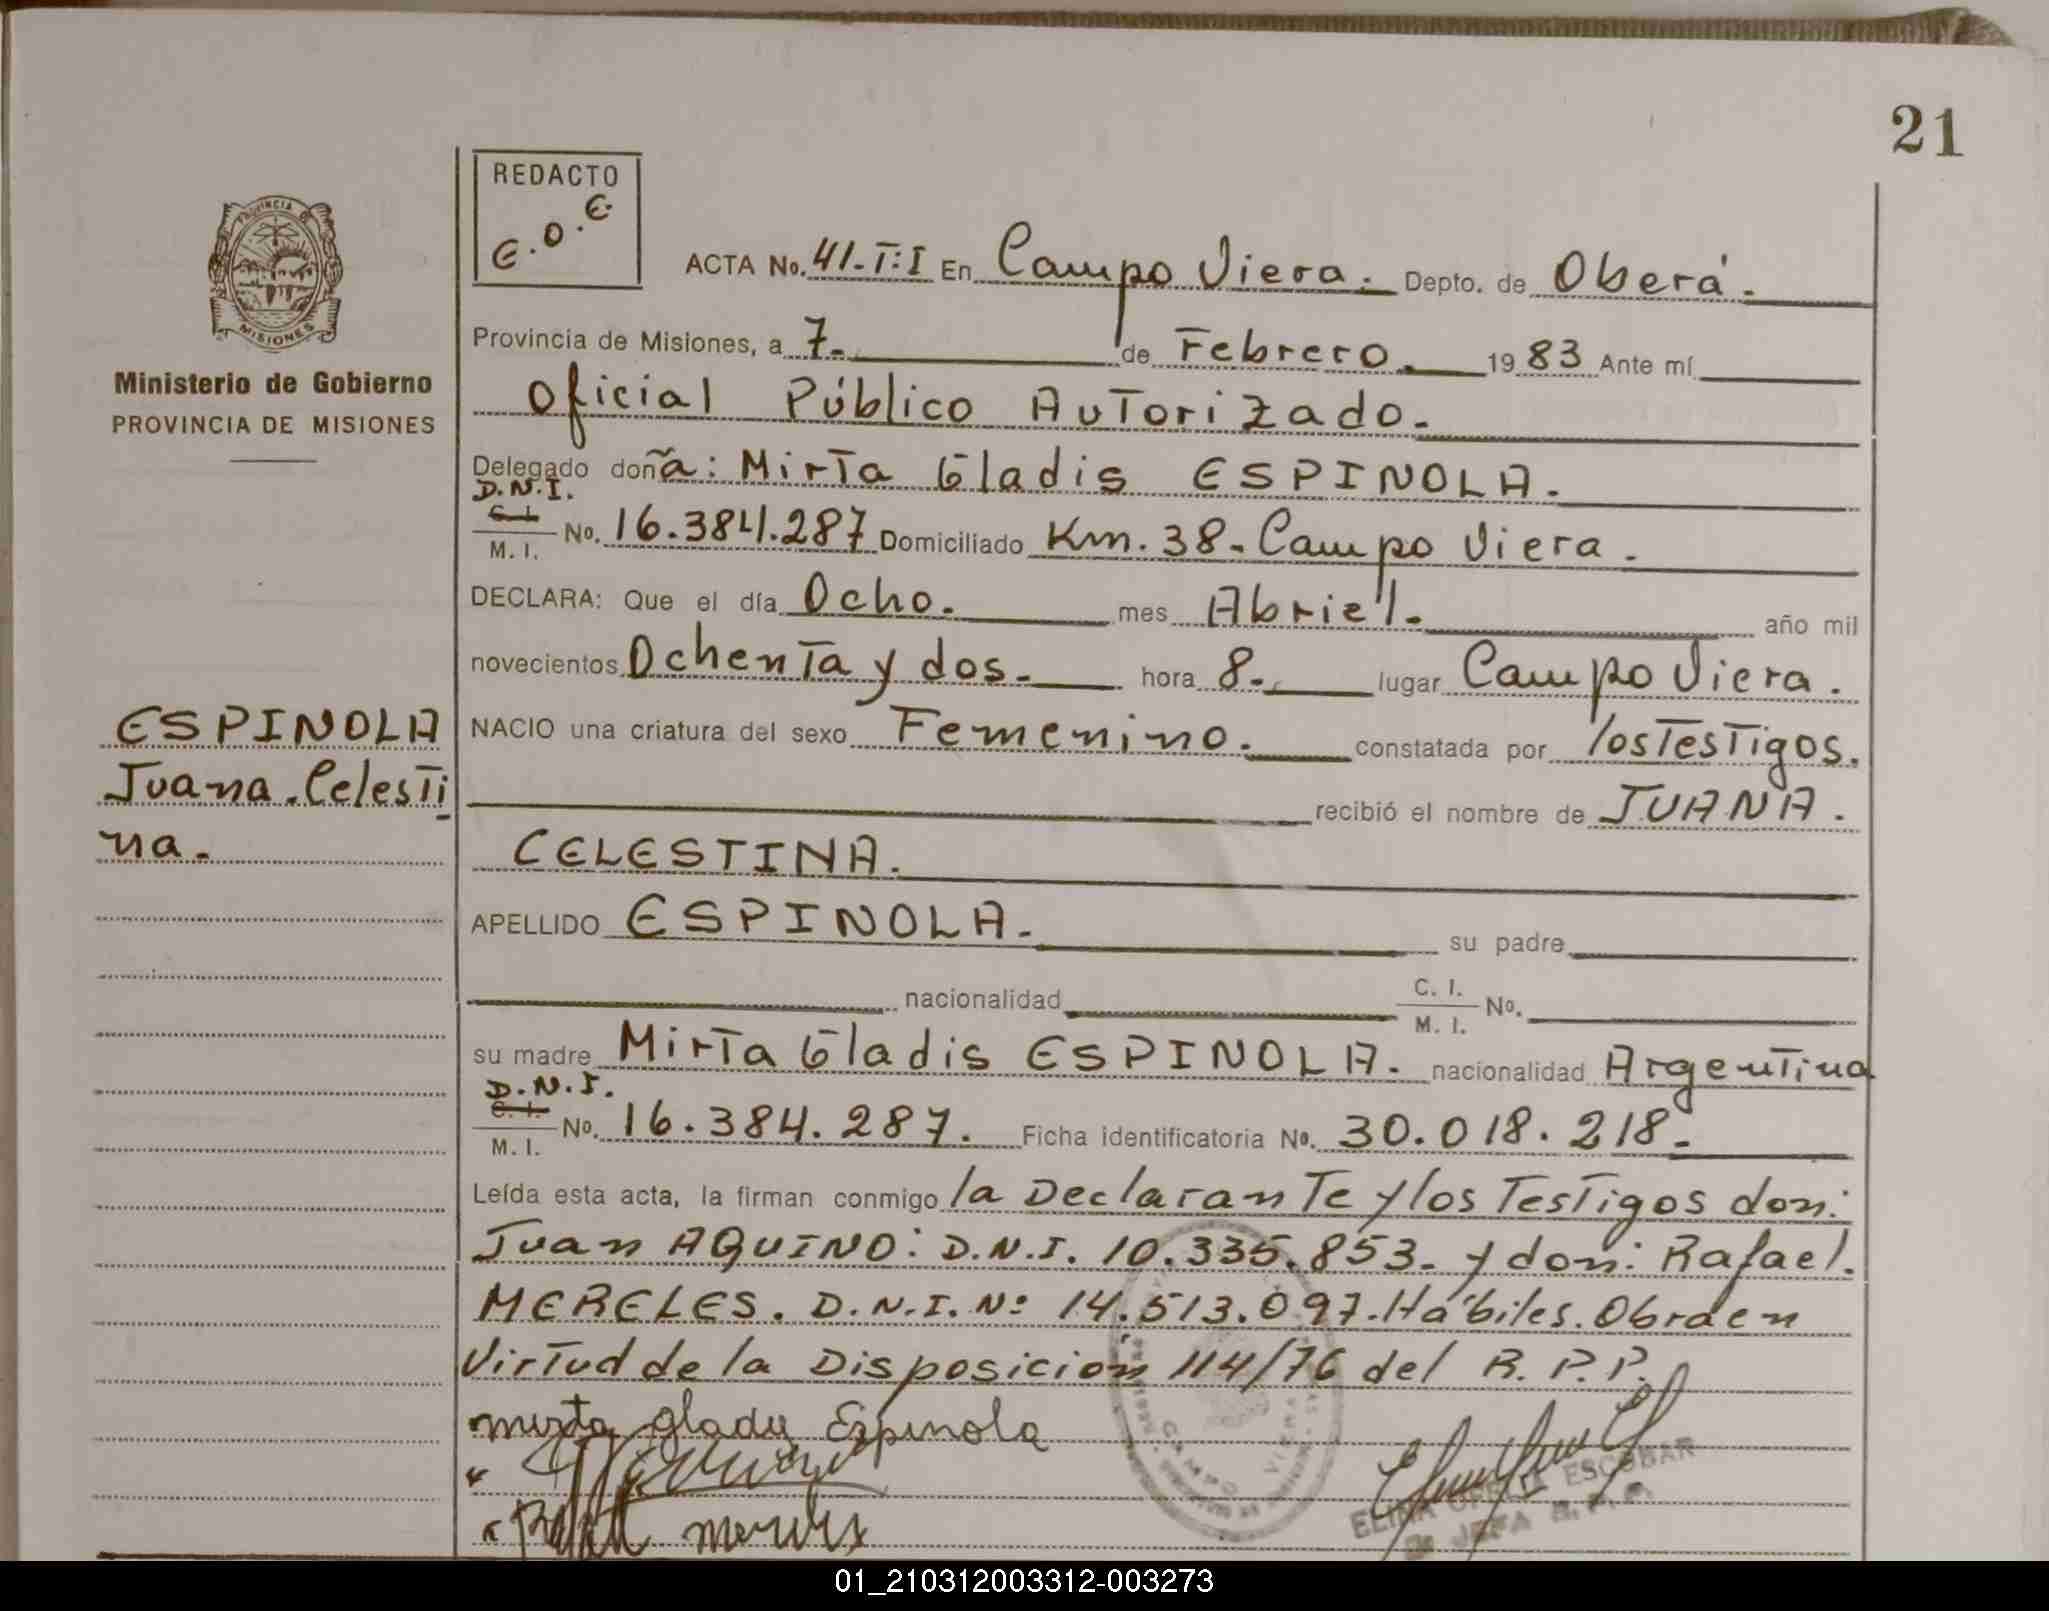 21
REDACTO
E.O.E.
PROVINCIA DE
MISIONES
Ministerio de Gobierno
PROVINCIA DE MISIONES
ACTA No. 41-T:I En Campo Viera. Depto. de Oberá.
Provincia de Misiones, a 7. de Febrero. 1983 Ante mí
Oficial Público Autorizado.
Delegado doña: Mirta Gladis ESPINOLA.
D.N.I.
C. I.
M. I. No. 16.384.287 Domiciliado Km. 38. Campo Viera.
DECLARA: Que el día Ocho. mes Abriel. año mil
novecientos Ochenta y dos. hora 8. lugar Campo Viera.
ESPINOLA
Juana Celesti
na.
NACIO una criatura del sexo Femenino. constatada por los Testigos.
recibió el nombre de JUANA.
CELESTINA.
APELLIDO ESPINOLA. su padre
nacionalidad C. I. M. I. No.
su madre Mirta Gladis ESPINOLA. nacionalidad Argentina
D.N.I.
C. I.
M. I. No. 16.384.287. Ficha identificatoria No. 30.018.218.
Leída esta acta, la firman conmigo la Declarante y los Testigos don:
Juan AQUINO: D.N.I. 10.335.853. y don: Rafael.
MERELES. D.N.I. Nº 14.513.097. Hábiles. Obra en
Virtud de la Disposición 114/76 del R.P.P.
mirta glady Espinola
CAMPO VIERA
ELINA ESCOBAR
JEFA
01_210312003312-003273